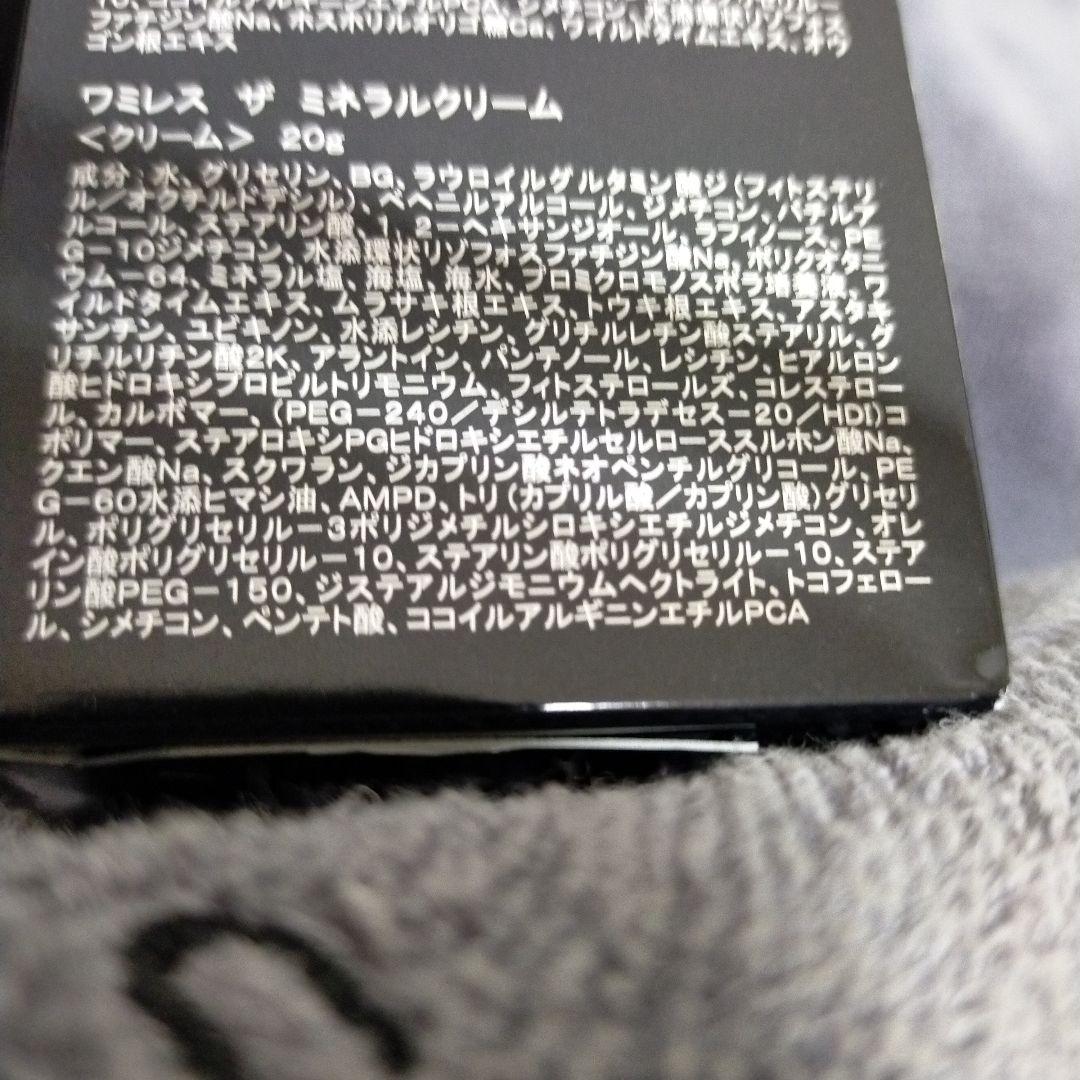 10、ココイルアルギニンエチルPCA、ジメチコン、水添環状リゾフォス
ファチジン酸Na、ホスホリルオリゴ糖Ca、ワイルドタイムエキス、オウ
ゴン根エキス
ワミレス ザ ミネラルクリーム
＜クリーム＞ 20g
成分：水、グリセリン、BG、ラウロイルグルタミン酸ジ（フィトステリ
ル／オクチルドデシル）、ベヘニルアルコール、ジメチコン、バチルア
ルコール、ステアリン酸、1，2－ヘキサンジオール、ラフィノース、PE
G－10ジメチコン、水添環状リゾフォスファチジン酸Na、ポリクオタニ
ウム－64、ミネラル塩、海塩、海水、プロミクロモノスポラ培養液、ワ
イルドタイムエキス、ムラサキ根エキス、トウキ根エキス、アスタキ
サンチン、ユビキノン、水添レシチン、グリチルレチン酸ステアリル、グ
リチルリチン酸2K、アラントイン、パンテノール、レシチン、ヒアルロン
酸ヒドロキシプロピルトリモニウム、フィトステロールズ、コレステロー
ル、カルボマー、（PEG－240／デシルテトラデセス－20／HDI）コ
ポリマー、ステアロキシPGヒドロキシエチルセルローススルホン酸Na、
クエン酸Na、スクワラン、ジカプリン酸ネオペンチルグリコール、PE
G－60水添ヒマシ油、AMPD、トリ（カプリル酸／カプリン酸）グリセリ
ル、ポリグリセリル－3ポリジメチルシロキシエチルジメチコン、オレ
イン酸ポリグリセリル－10、ステアリン酸ポリグリセリル－10、ステア
リン酸PEG－150、ジステアルジモニウムヘクトライト、トコフェロー
ル、シメチコン、ペンテト酸、ココイルアルギニンエチルPCA